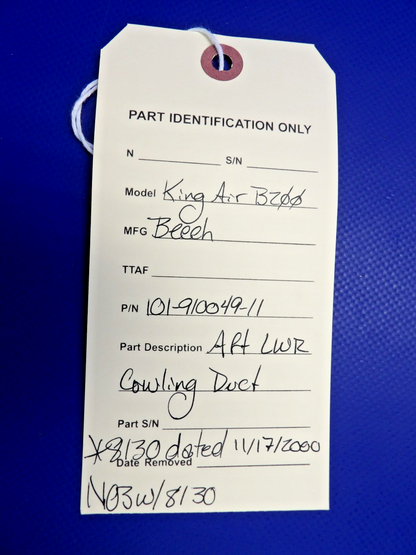 PART IDENTIFICATION ONLY
N ____________ S/N ____________
Model King Air B200
MFG Beech
TTAF
P/N 101-910049-11
Part Description Aft LWR
Cowling Duct
Part S/N
*8130 dated 11/17/2000
Date Removed
N03 w/8130